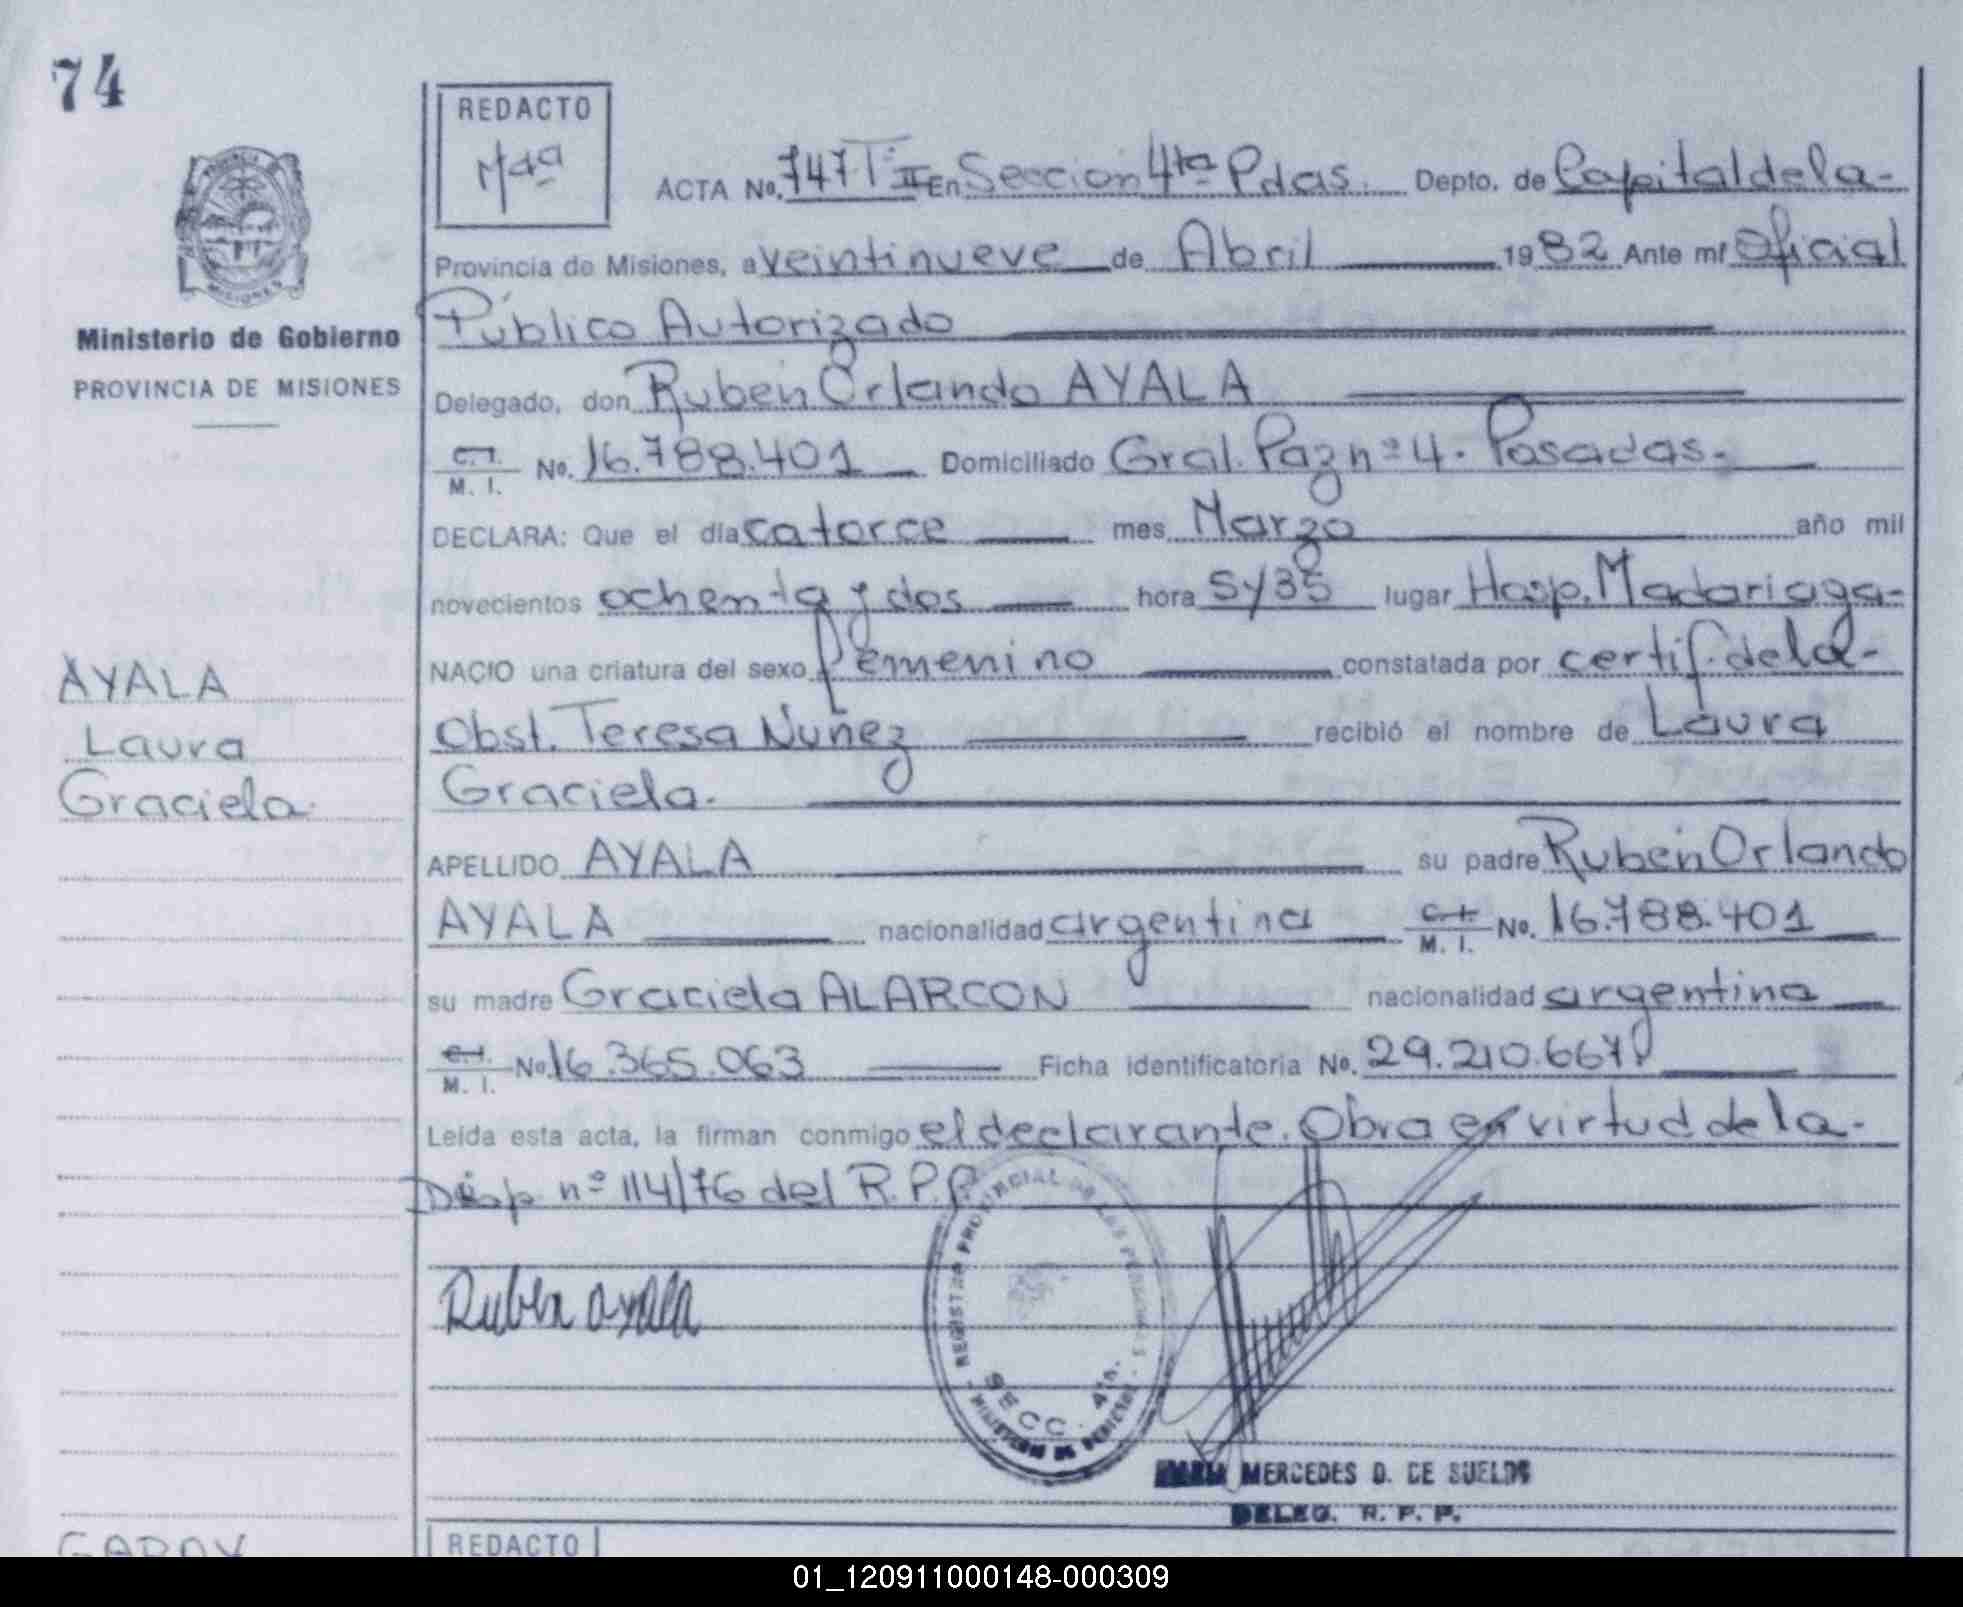 74
REDACTO
Mda
ACTA No. 747 T II En Sección 4ta Pdas. Depto. de Capital de la-
Provincia de Misiones, a veintinueve de Abril 1982 Ante mí Oficial
Público Autorizado
Delegado, don Rubén Orlando AYALA
C.I. M. I. No. 16.788.401 Domiciliado Gral. Paz nº 4. Posadas.
DECLARA: Que el día catorce mes Marzo año mil
novecientos ochenta y dos hora 5y35 lugar Hosp. Madariaga-
NACIO una criatura del sexo femenino constatada por certif. de la-
Obst. Teresa Nuñez recibió el nombre de Laura
Graciela.
APELLIDO AYALA su padre Rubén Orlando
AYALA nacionalidad argentina C.I. M. I. No. 16.788.401
su madre Graciela ALARCON nacionalidad argentina
C.I. M. I. No. 16.365.063 Ficha identificatoria No. 29.210.667
Leída esta acta, la firman conmigo el declarante. Obra en virtud de la-
Disp. nº 114/76 del R.P.P.
Ruben ayala
REGISTRO PROVINCIAL DE LAS PERSONAS
SECC. 4ta.
MARIA MERCEDES D. DE SUELDO
DELEG. R. P. P.
PROVINCIA
MISIONES
Ministerio de Gobierno
PROVINCIA DE MISIONES
AYALA
Laura
Graciela.
GARAY
REDACTO
01_120911000148-000309